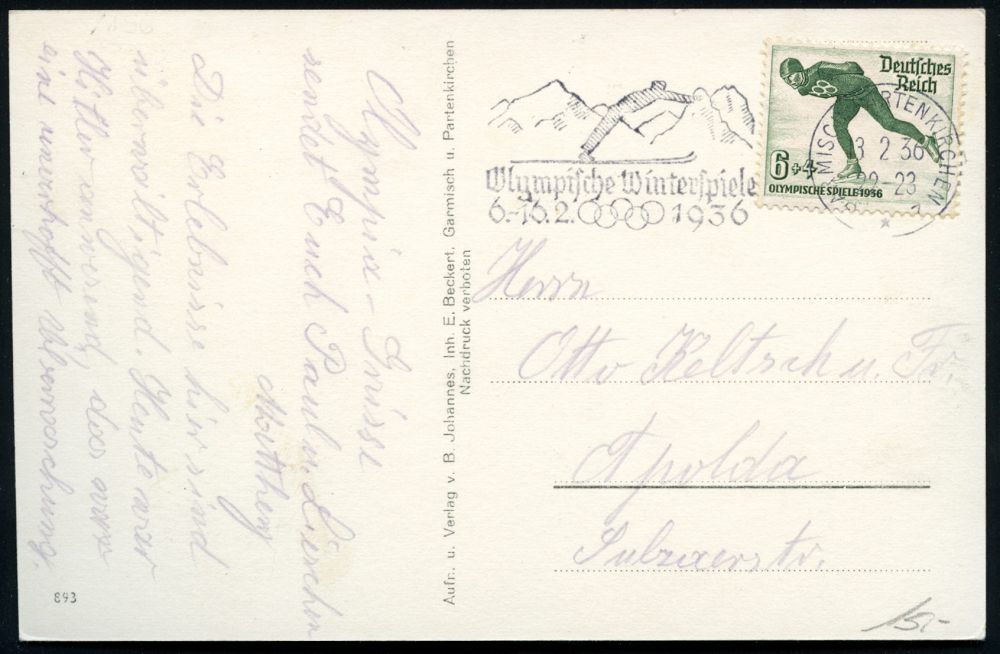 Olympia-Grüsse
sendet Euch Paul u. Lieschen
Die Erlebnisse hier sind
überwältigend. Heute war
Hitler anwesend, das war
eine unverhofft Überraschung.
893
Aufn. u. Verlag v. B. Johannes, Inh. E. Beckert, Garmisch u. Partenkirchen
Nachdruck verboten
Olympische Winterspiele
6.-16.2. 1936
Deutsches
Reich
6+4
OLYMPISCHE SPIELE 1936
GARMISCH-PARTENKIRCHEN
2 36
22-23
Herrn
Otto Keltsch u. Fr.
Apolda
Sulzaerstr.
15,-